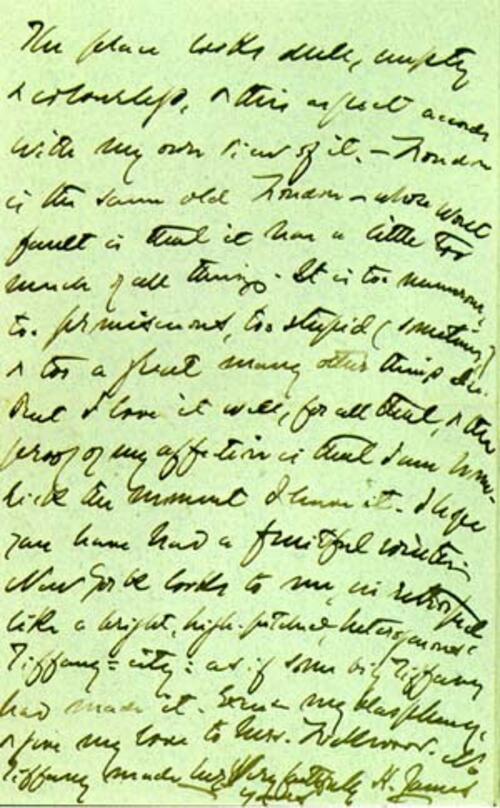 The place looks dull, empty
& colourless, & this aspect accords
with my own view of it. – London
is the same old London – whose worst
fault is that it has a little too
much of all things. It is too numerous,
too promiscuous, too stupid (sometimes)
& too a great many other things
But I love it well, for all that, & the
proof of my affection is that I am home-
sick the moment I leave it. I hope
you have had a fruitful winter.
New York looks to me, in retrospect
like a bright, high-pitched, heterogeneous
Tiffany-city: as if some big Tiffany
had made it. Excuse my blasphemy,
& give my love to Mrs.
Tiffany made her! Very faithfully H. James
yours